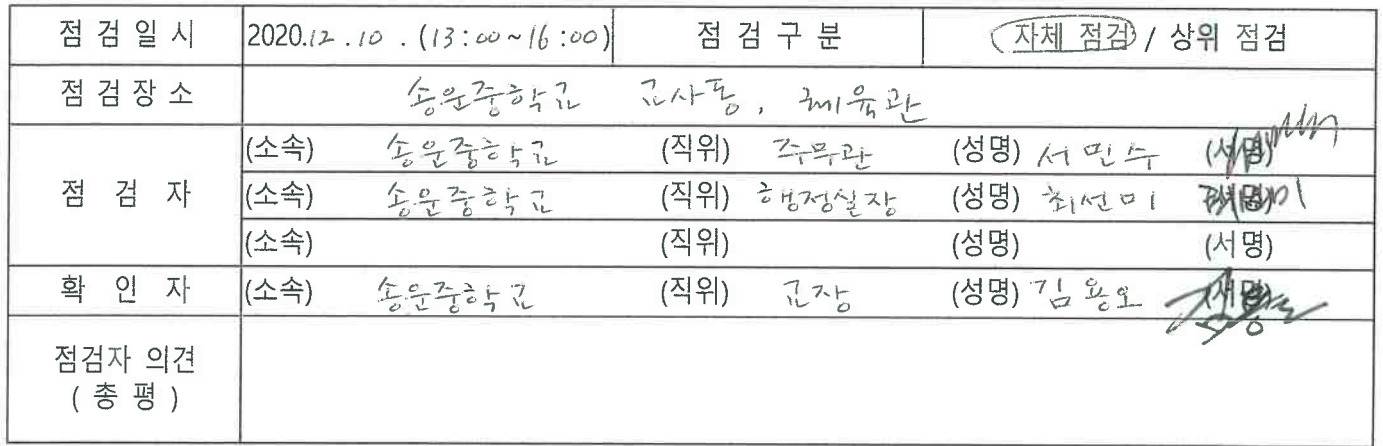 점 검 일 시 2020.12.10.(13:00~16:00) 점 검 구 분 자체 점검 / 상위 점검
점 검 장 소 송운중학교 교사동, 체육관
(소속) 송운중학교 (직위) 주무관 (성명) 서민수 (서명)
점 검 자 (소속) 송운중학교 (직위) 행정실장 (성명) 최선미 (서명)
(소속) (직위) (성명) (서명)
확 인 자 (소속) 송운중학교 (직위) 교장 (성명) 김용오 (서명)
점검자 의견
( 총 평 )